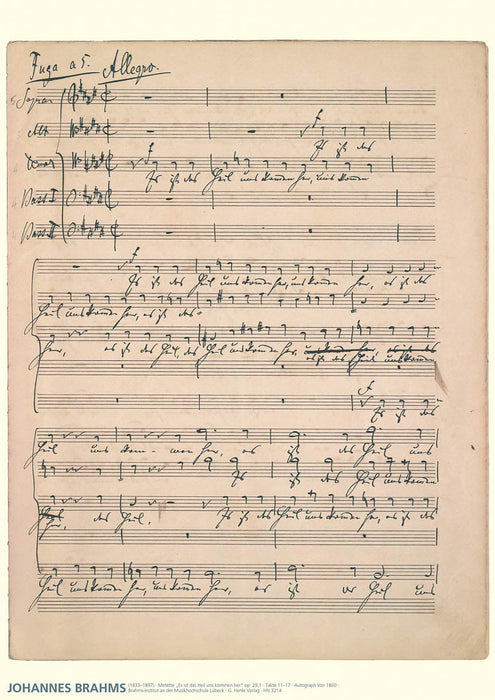 Fuga a 5. Allegro.
Sopran
Alt
Tenor
Bass I
Bass II
f
Es ist das
f
Es ist das Heil uns kommen her, uns kommen
f
Es ist das Heil uns kommen her, uns kommen her, es ist das
Heil uns kommen her, es ist das
her, es ist das Heil, das Heil uns kommen her,
es ist das Heil uns kommen
f
Es ist das
Heil uns kom- men her, es ist das Heil uns
Es ist das Heil uns kommen
her, das Heil. Es ist das Heil uns kommen her, es ist das
Heil uns kommen her, uns kommen her, es ist Heil uns
JOHANNES BRAHMS (1833–1897) · Motette „Es ist das Heil uns kommen her“ op. 29,1 · Takte 11–17 · Autograph von 1860 ·
Brahms-Institut an der Musikhochschule Lübeck · G. Henle Verlag · HN 3214